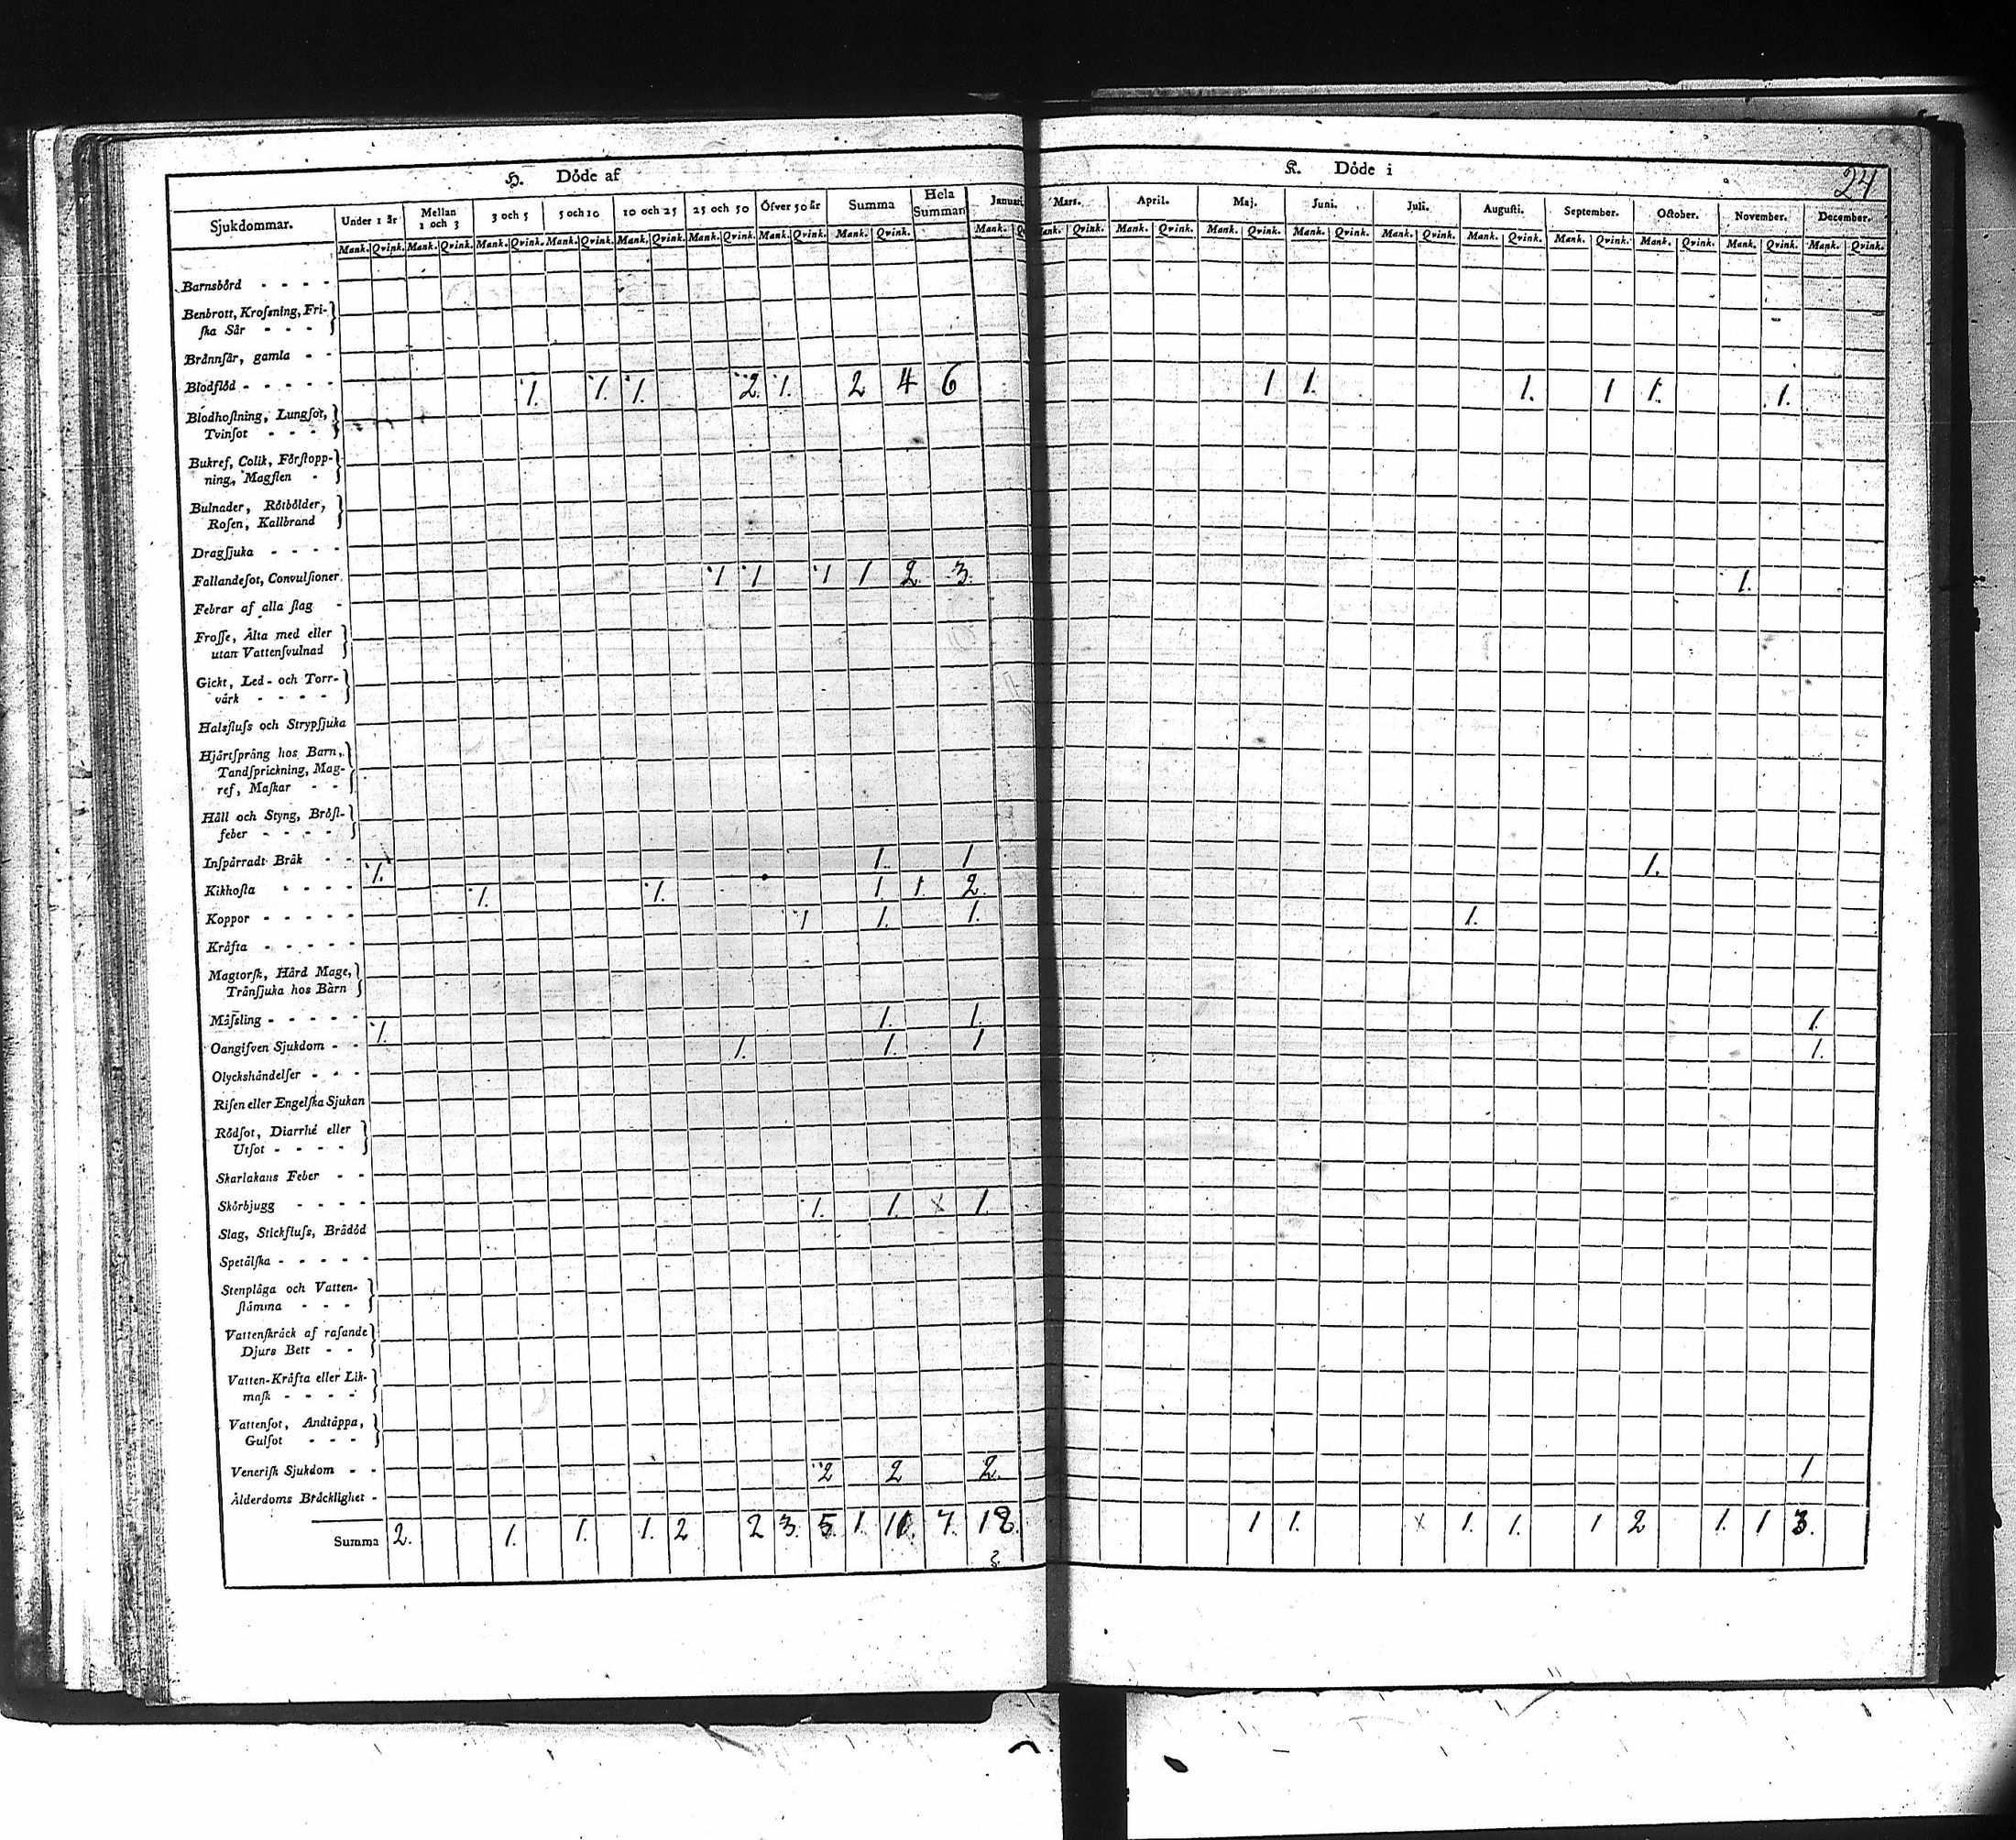 H. Döde af
K. Döde i
24
Sjukdommar. Under 1 år Mellan 1 och 3 3 och 5 5 och 10 10 och 25 25 och 50 Öfver 50 år Summa Hela Summan Januari. Mars. April. Maj. Juni. Juli. Augusti. September. October. November. December.
Mank. Qvink. Mank. Qvink. Mank. Qvink. Mank. Qvink. Mank. Qvink. Mank. Qvink. Mank. Qvink. Mank. Qvink. Mank. Qvink. Mank. Qvink. Mank. Qvink. Mank. Qvink. Mank. Qvink. Mank. Qvink. Mank. Qvink. Mank. Qvink. Mank. Qvink. Mank. Qvink.
Barnsbörd - - - -
Benbrott, Krossning, Fri-
ska Sår - - -
Brännsår, gamla - -
Blodflöd - - - - - 1. 1. 1. 2. 1. 2 4 6 1 1. 1. 1 1. 1.
Blodhostning, Lungsot,
Tvinsot - - - -
Bukref, Colik, Förstopp-
ning, Magsten -
Bulnader, Rötbölder,
Rosen, Kallbrand
Dragsjuka - - - -
Fallandesot, Convulsioner. 1 1 1 1 2 3. 1.
Febrar af alla slag -
Frosse, Älta med eller
utan Vattensvulnad
Gickt, Led- och Torr-
värk - - - -
Halsfluss och Strypsjuka
Hjärtsprång hos Barn,
Tandsprickning, Mag-
ref, Maskar - -
Håll och Styng, Bröst-
feber - - - -
Inspärradt Bråk - - 1. 1. 1 1.
Kikhosta - - - - 1. 1. 1. 1. 2.
Koppor - - - - - 1 1. 1. 1.
Kräfta - - - - -
Magtorsk, Hård Mage,
Trånsjuka hos Barn
Mässling - - - - - 1. 1. 1. 1.
Oangifven Sjukdom - - 1. 1. 1 1.
Olyckshändelser - - -
Risen eller Engelska Sjukan
Rödsot, Diarrhé eller
Utsot - - - -
Skarlakans Feber - -
Skörbjugg - - - - 1. 1. x 1.
Slag, Stickfluss, Brådöd
Spetälska - - - - -
Stenplåga och Vatten-
stämma - - -
Vattenskräck af rasande
Djurs Bett - -
Vatten-Kräfta eller Lik-
mask - - - -
Vattensot, Andtäppa,
Gulsot - - -
Venerisk Sjukdom - - 2 2 2. 1
Ålderdoms Bräcklighet -
Summa 2. 1. 1. 1. 2 2 3. 5 1. 11. 7. 18. 1 1. x 1. 1. 1 2 1. 1 3.